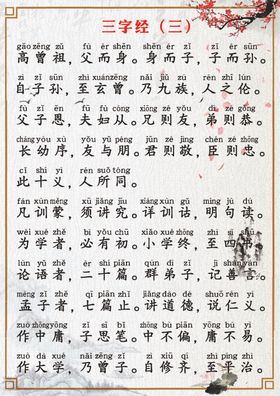 三字经（三）
gāo zēng zǔ fù ér shēn shēn ér zǐ zǐ ér sūn
高曾祖，父而身。身而子，子而孙。
zì zǐ sūn zhì xuán zēng nǎi jiǔ zú rén zhī lún
自子孙，至玄曾。乃九族，人之伦。
fù zǐ ēn fū fù cóng xiōng zé yǒu dì zé gōng
父子恩，夫妇从。兄则友，弟则恭。
zhǎng yòu xù yǒu yǔ péng jūn zé jìng chén zé zhōng
长幼序，友与朋。君则敬，臣则忠。
cǐ shí yì rén suǒ tóng
此十义，人所同。
fán xùn méng xū jiǎng jiū xiáng xùn gǔ míng jù dòu
凡训蒙，须讲究。详训诂，明句读。
wéi xué zhě bì yǒu chū xiǎo xué zhōng zhì sì shū
为学者，必有初。小学终，至四书。
lún yǔ zhě èr shí piān qún dì zǐ jì shàn yán
论语者，二十篇。群弟子，记善言。
mèng zǐ zhě qī piān zhǐ jiǎng dào dé shuō rén yì
孟子者，七篇止。讲道德，说仁义。
zuò zhōng yōng zǐ sī bǐ zhōng bù piān yōng bú yì
作中庸，子思笔。中不偏，庸不易。
zuò dà xué nǎi zēng zǐ zì xiū qí zhì píng zhì
作大学，乃曾子。自修齐，至平治。